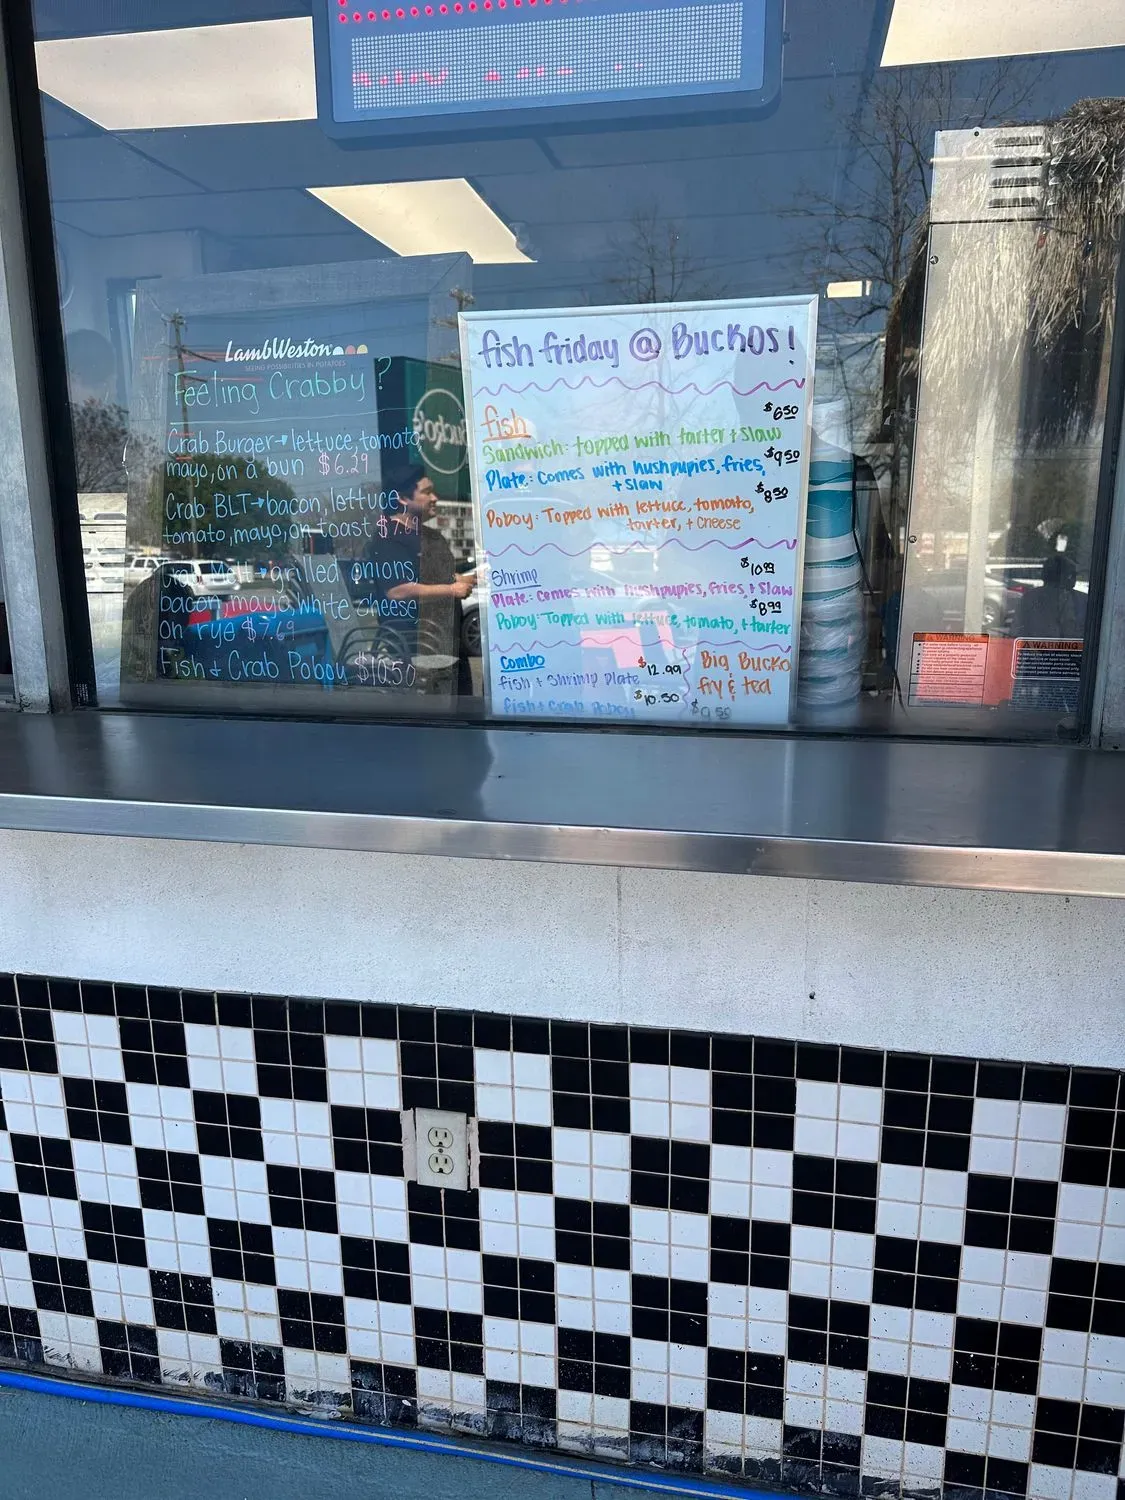 LambWeston
SEEING POSSIBILITIES IN POTATOES
Feeling Crabby?
Crab Burger→lettuce,tomato
mayo,on a bun $6.29
Crab BLT→bacon,lettuce,
tomato,mayo,on toast $7.69
Crab Melt→grilled onions,
bacon,mayo,white cheese
on rye $7.69
Fish & Crab Poboy $10.50
fish friday @ Buckos!
fish
$6.50
Sandwich: topped with tarter + slaw
$9.50
Plate: comes with hushpupies, fries,
+ slaw
$8.50
Poboy: Topped with lettuce, tomato,
tarter, + cheese
Shrimp
$10.99
Plate: comes with hushpupies, fries, + slaw
$8.99
Poboy-Topped with lettuce, tomato, + tarter
Combo
$12.99
fish + Shrimp Plate
$10.50
fish + Crab Poboy
Big Bucko
fry & tea
$9.50
WARNING
WARNING